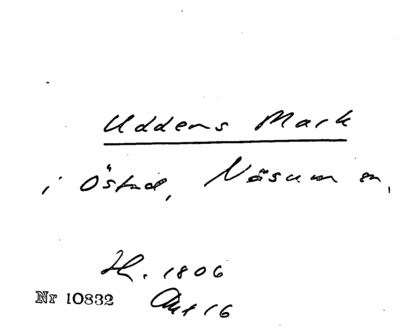 Uddens Mark
i Östad, Näsum sn,
H. 1806
Nr 10832 Akt 16